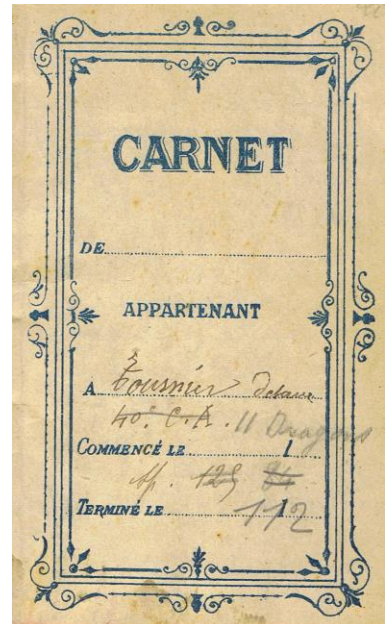 CARNET
DE
APPARTENANT
A Tournier
40e C.A. 11 Dragons
COMMENCÉ LE 1
125
TERMINÉ LE 1
112